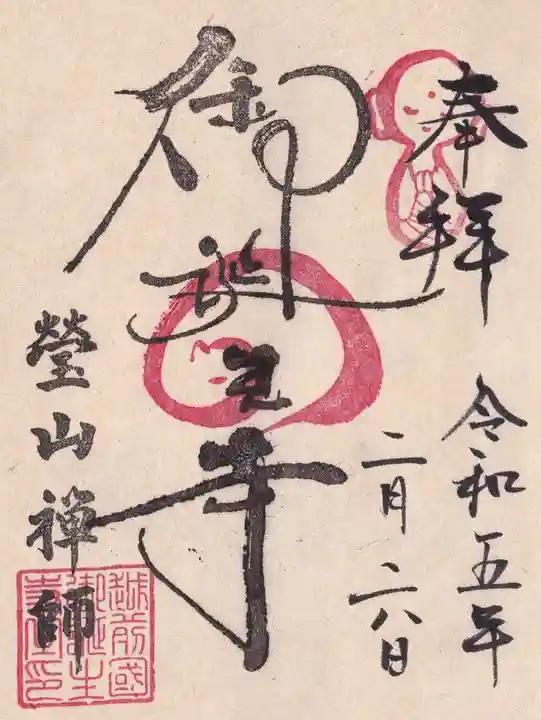 奉拝
令和五年
二月二八日
御誕生寺
瑩山禅師
越前國
御誕生
寺之印